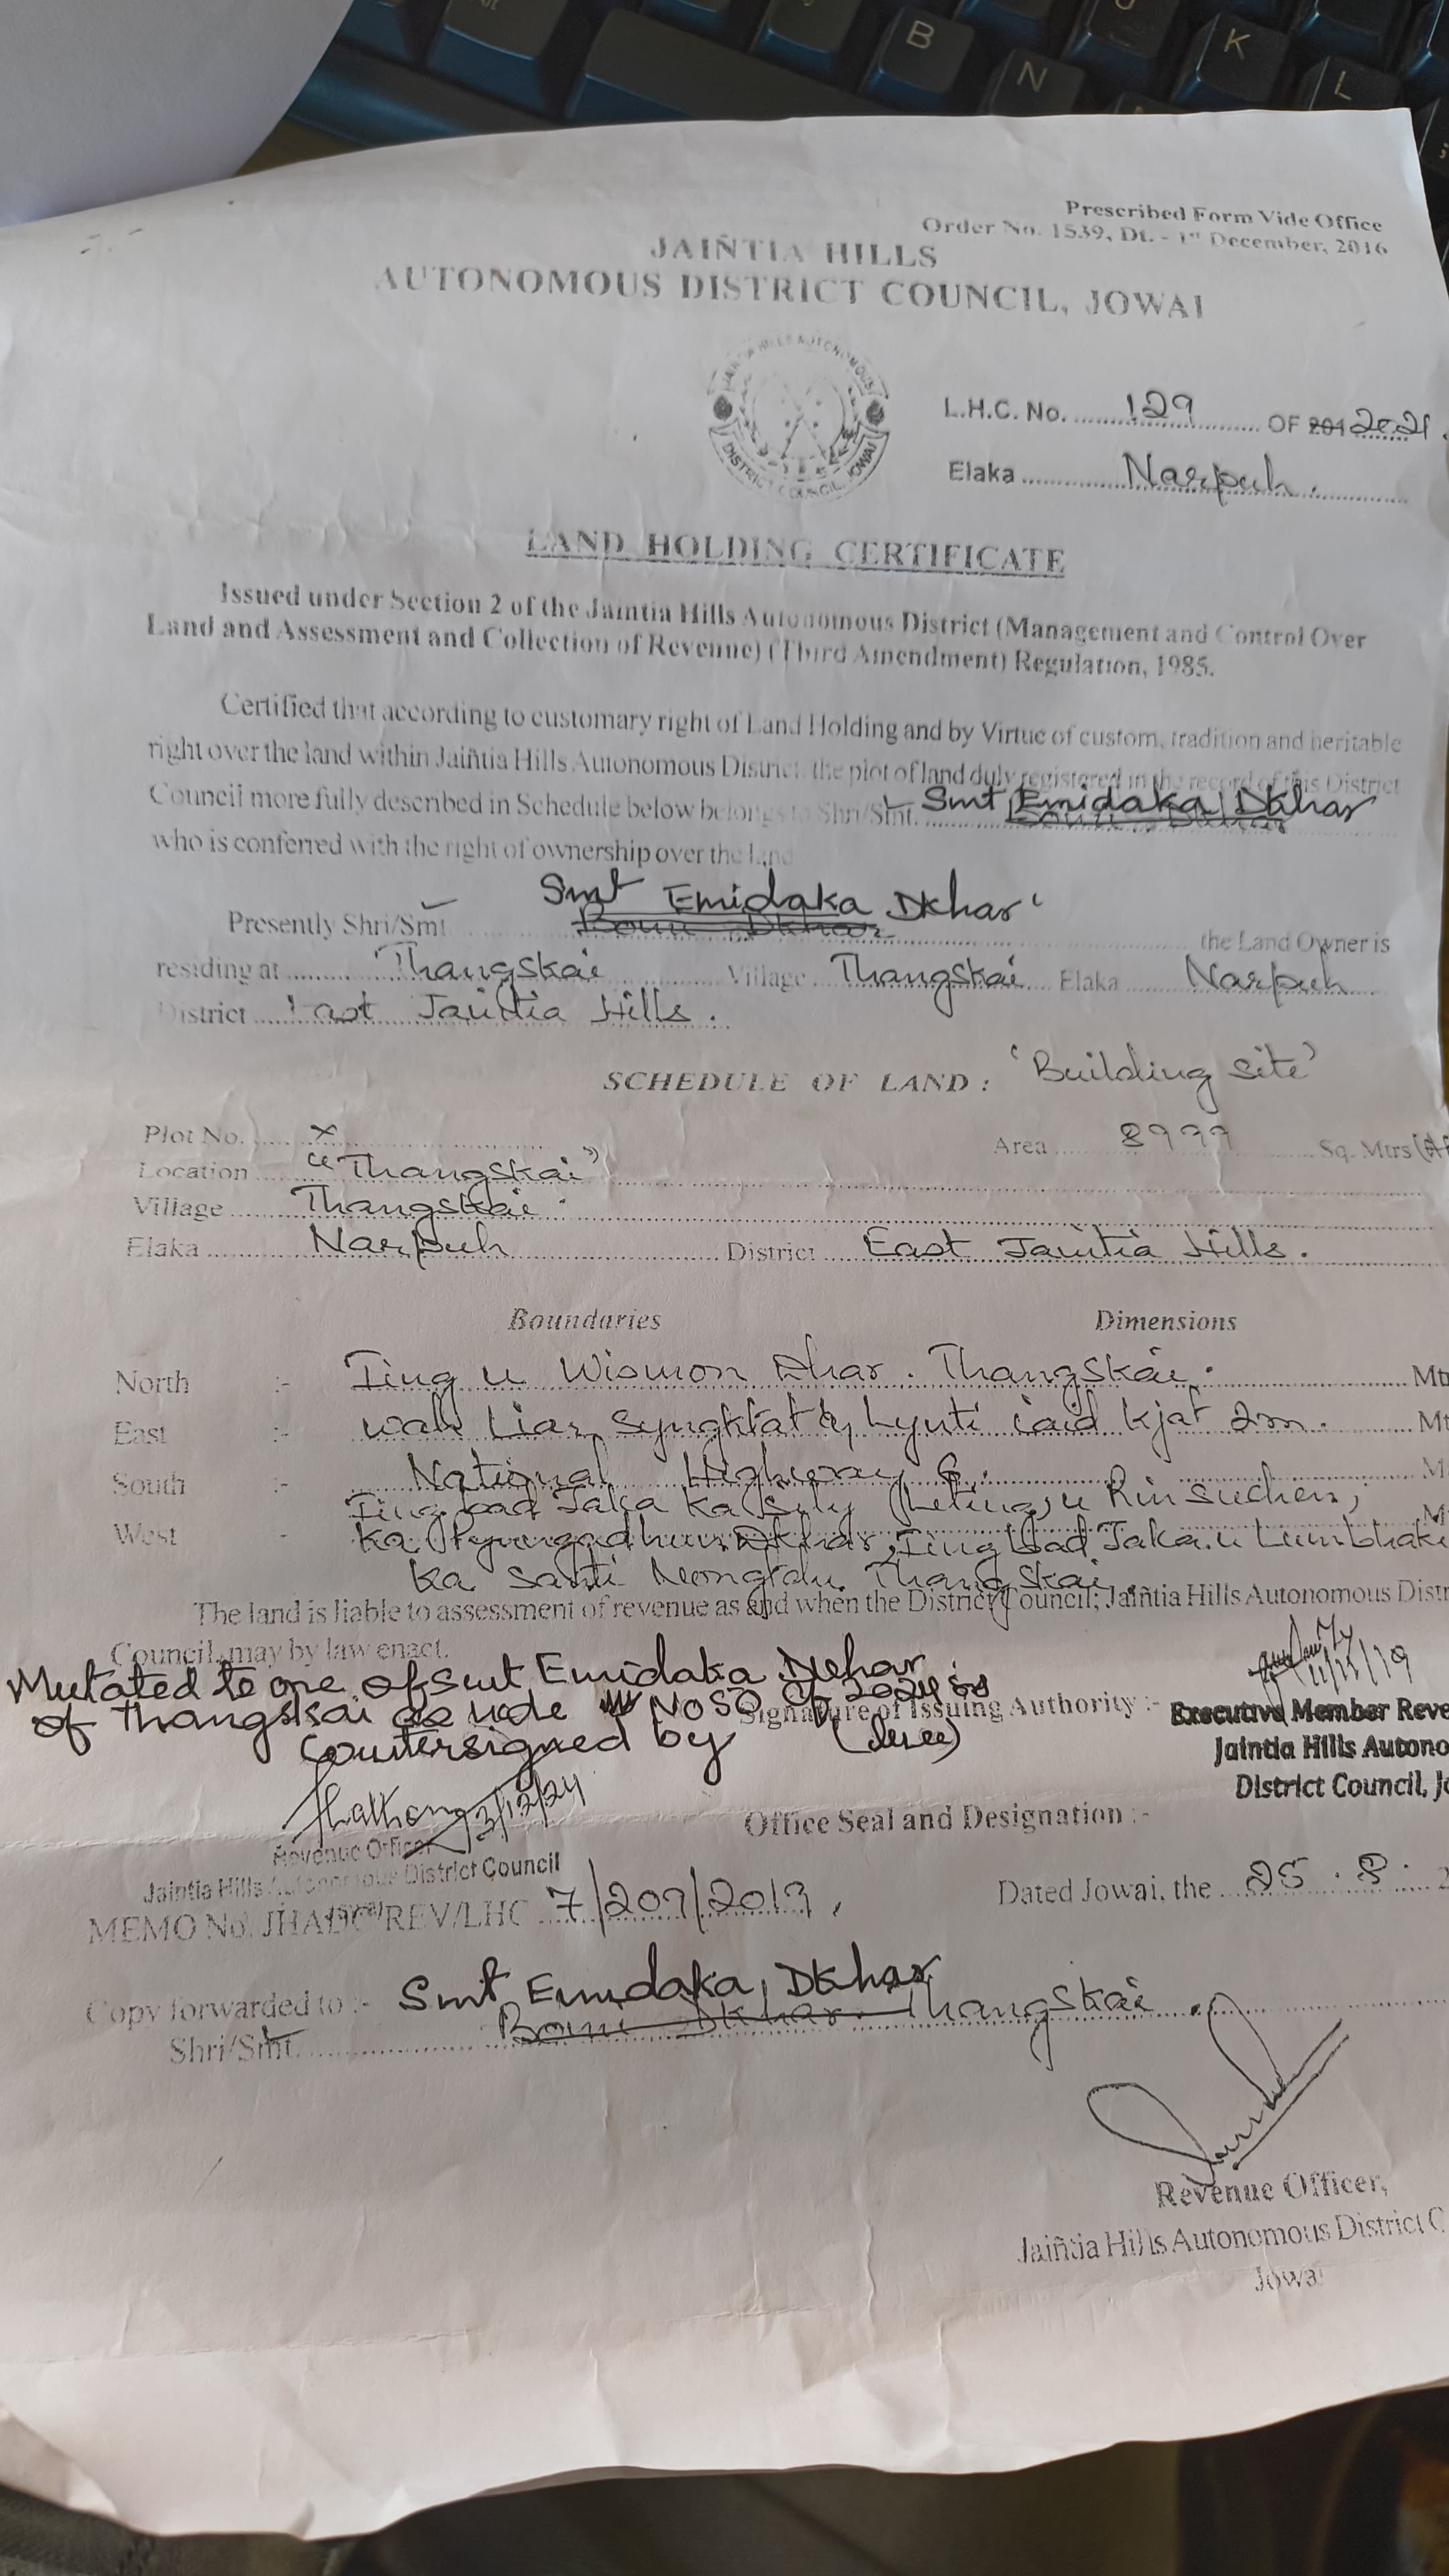 B
N
K
L
Prescribed Form Vide Office
Order No. 1539, Dt. - 1st December, 2016
JAIÑTIA HILLS
AUTONOMOUS DISTRICT COUNCIL, JOWAI
JAIÑTIA HILLS AUTONOMOUS
DISTRICT COUNCIL, JOWAI
L.H.C. No. 129 OF 201 2021.
Elaka Narpuh.
LAND HOLDING CERTIFICATE
Issued under Section 2 of the Jaintia Hills Autonomous District (Management and Control Over
Land and Assessment and Collection of Revenue) (Third Amendment) Regulation, 1985.
Certified that according to customary right of Land Holding and by Virtue of custom, tradition and heritable
right over the land within Jaiñtia Hills Autonomous District, the plot of land duly registered in the record of this District
Council more fully described in Schedule below belongs to Shri/Smt. Smt Emidaka Dkhar
who is conferred with the right of ownership over the land
Smt Emidaka Dkhar
Presently Shri/Smt Dkhar the Land Owner is
residing at Thangskai Village Thangskai Elaka Narpuh
District East Jaintia Hills.
SCHEDULE OF LAND : 'Building site'
Plot No. x Area 8999 Sq. Mtrs
Location "Thangskai"
Village Thangskai.
Elaka Narpuh District East Jaintia Hills.
Boundaries Dimensions
North :- Iing u Wismon Dhar. Thangskai. Mt
East :- wah Liar Syngktat & Lynti iaid kjat 2m. Mt
South :- National Highway 6. M
West - Ka Dkhar, Iing bad Jaka u
Ka Santi Thangskai.
The land is liable to assessment of revenue as and when the District Council, Jaiñtia Hills Autonomous Distr
Council, may by law enact.
Mutated to one of smt Emidaka Dkhar
of Thangskai vide No 50 of 2024
Countersigned by
Signature of Issuing Authority :-
Executive Member Reve
Jaintia Hills Autono
District Council, Jo
3/12/24
Revenue Officer
Jaintia Hills Autonomous District Council
Jowai
Office Seal and Designation :-
MEMO No. JHADC/REV/LHC 7/209/2019, Dated Jowai, the 25.8. 2
Copy forwarded to :- Smt Emidaka Dkhar
Shri/Smt. Dkhar Thangskai.
Revenue Officer,
Jaiñtia Hills Autonomous District C
Jowai